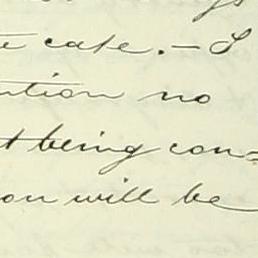 te case. — I
ution no
t being con=
on will be